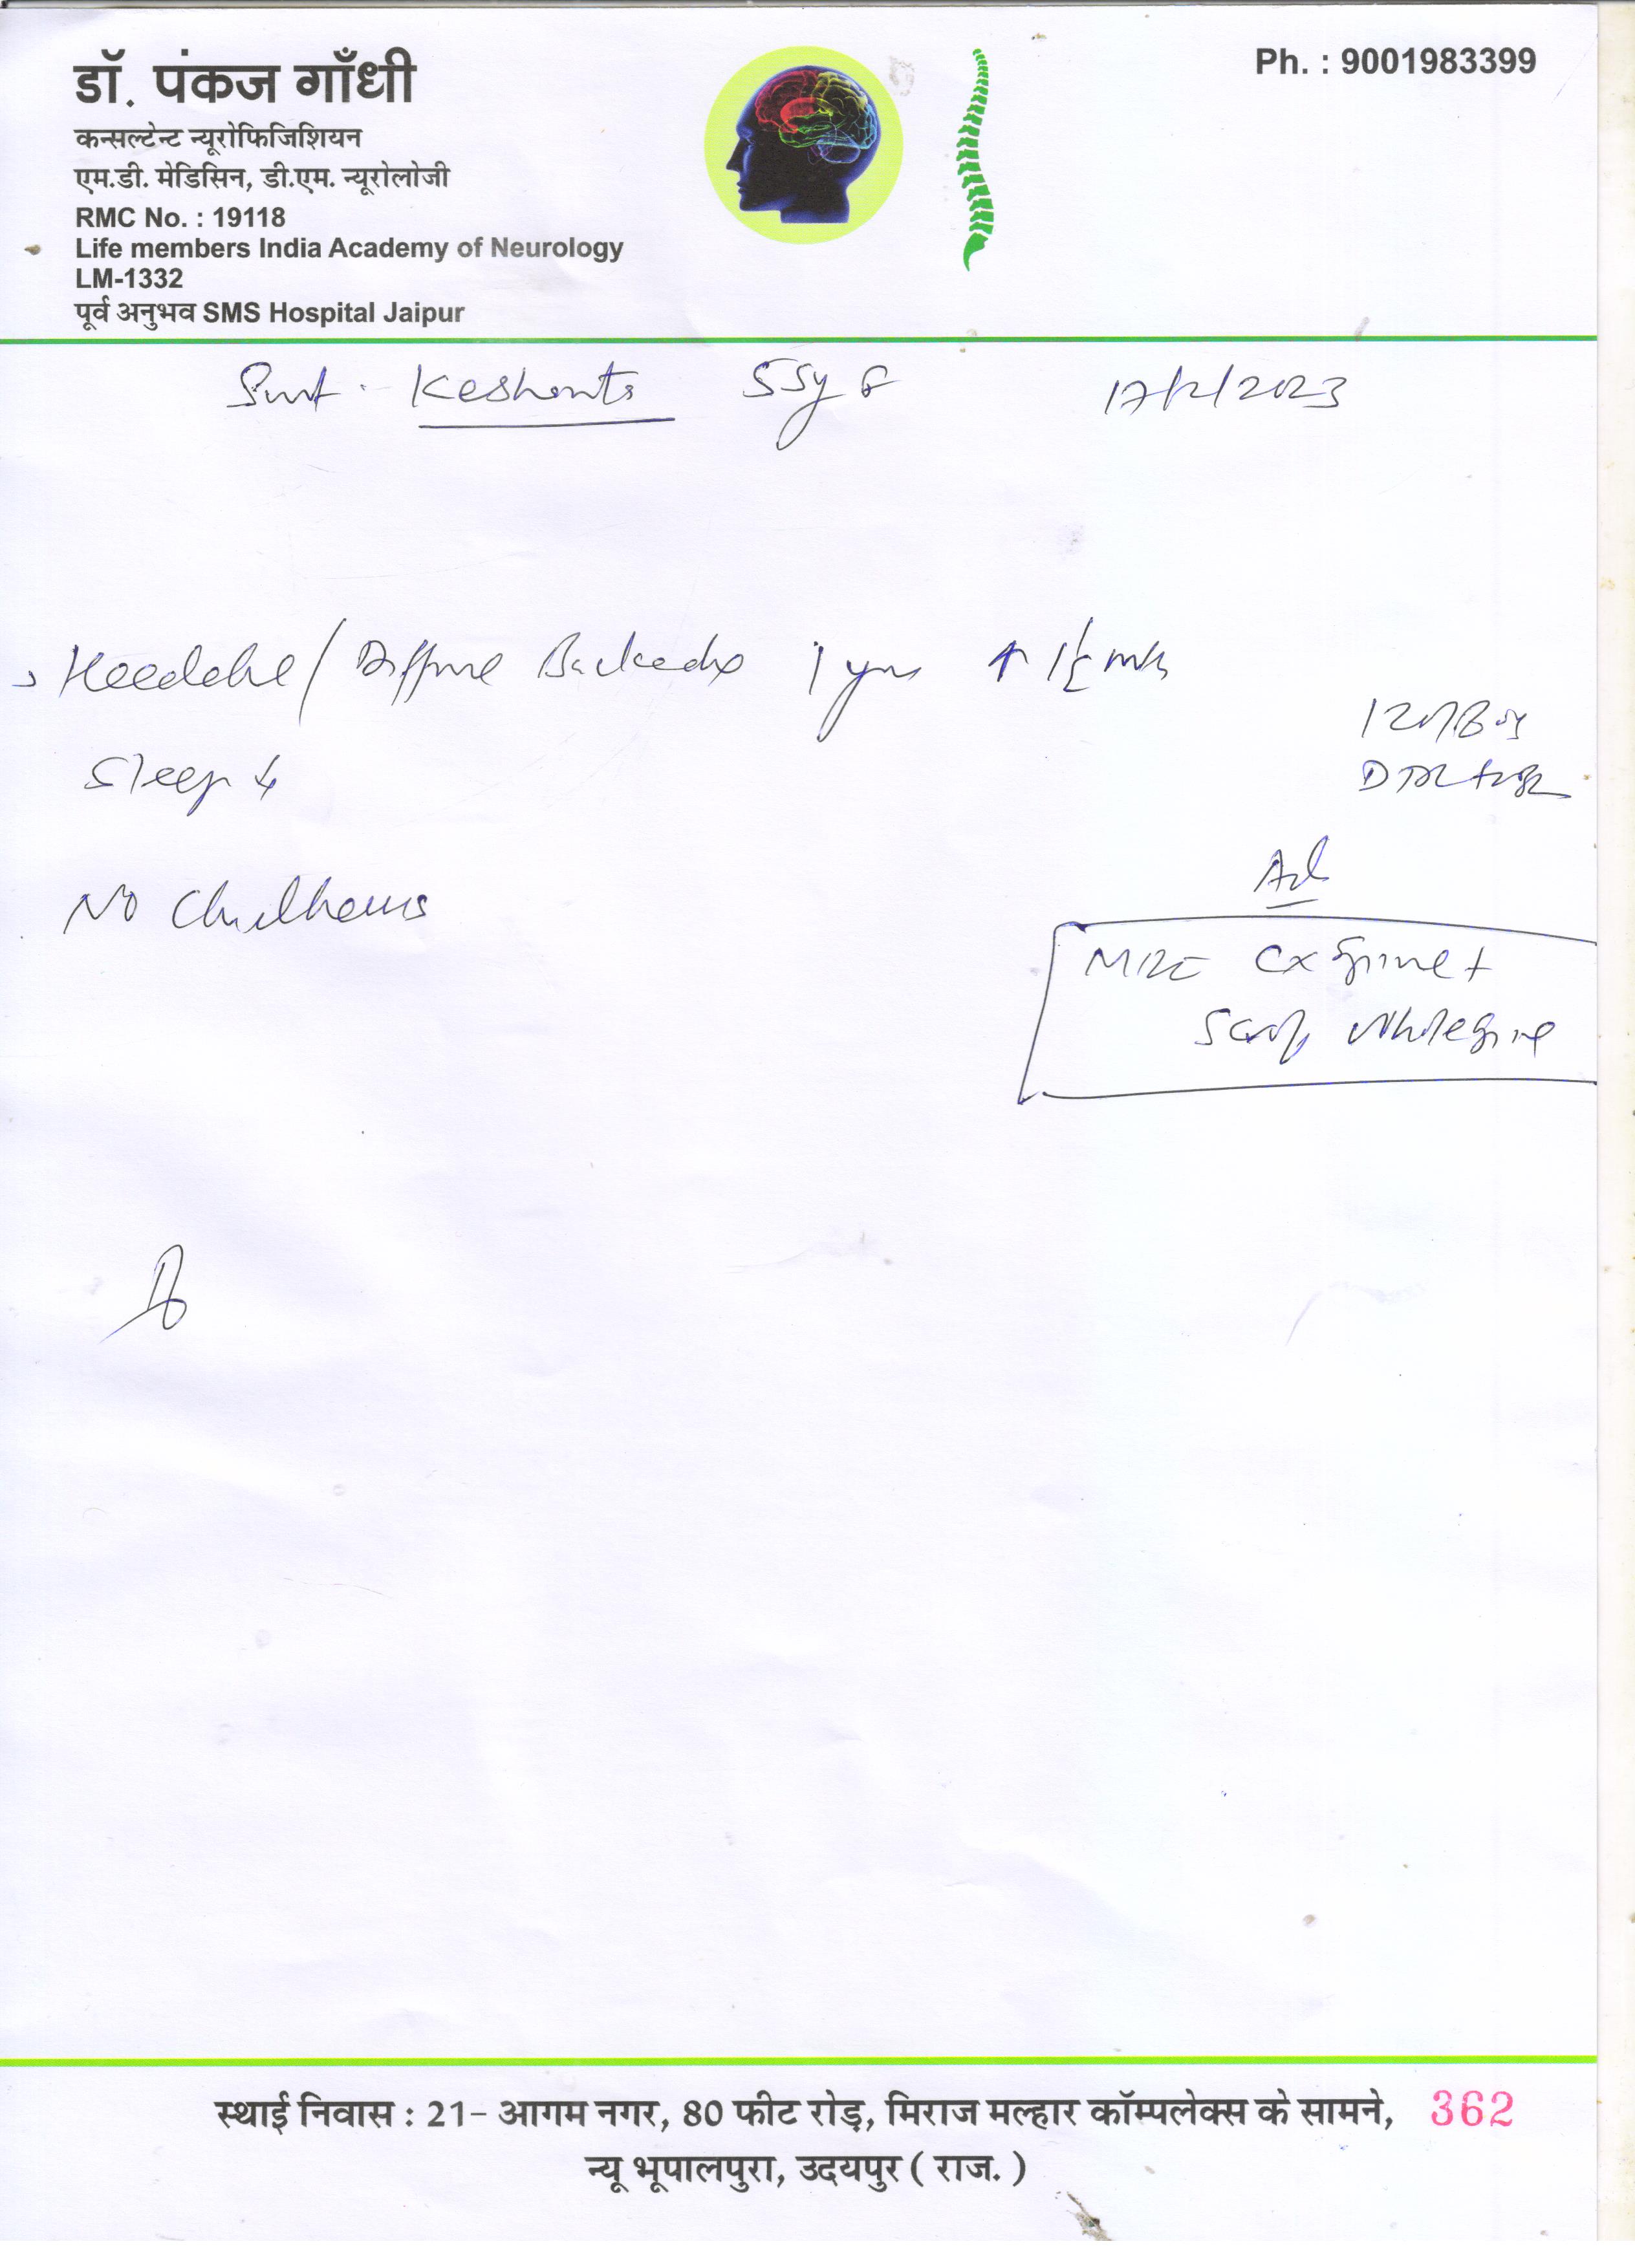 डॉ. पंकज गाँधी
कन्सल्टेन्ट न्यूरोफिजिशियन
एम.डी. मेडिसिन, डी.एम. न्यूरोलोजी
RMC No. : 19118
Life members India Academy of Neurology
LM-1332
पूर्व अनुभव SMS Hospital Jaipur
Ph. : 9001983399
Smt. 55y F 17/2/2023
Headache / Diffuse Backache 1 yrs ↑ 1½ mth
Sleep ↓
No
Ad
MRI Cx Spine +
Whole Spine
स्थाई निवास : 21- आगम नगर, 80 फीट रोड़, मिराज मल्हार कॉम्पलेक्स के सामने, 362
न्यू भूपालपुरा, उदयपुर ( राज. )